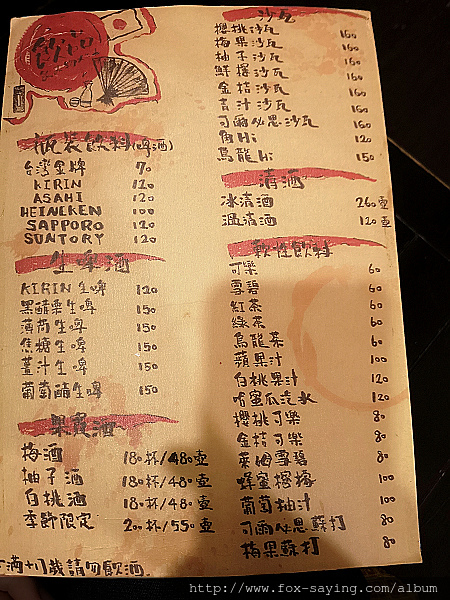 飲品
瓶裝飲料(啤酒)
台灣金牌 70
KIRIN 120
ASAHI 120
HEINEKEN 100
SAPPORO 120
SUNTORY 120
生啤酒
KIRIN生啤 120
黑醋栗生啤 150
薄荷生啤 150
焦糖生啤 150
薑汁生啤 150
葡萄醋生啤 150
果實酒
梅酒 180杯/480壺
柚子酒 180杯/480壺
白桃酒 180杯/480壺
季節限定 200杯/550壺
未滿十八歲請勿飲酒.
沙瓦
櫻桃沙瓦 160
梅果沙瓦 160
柚子沙瓦 160
鮮檸沙瓦 160
金桔沙瓦 160
青汁沙瓦 160
可爾必思沙瓦 160
角Hi 120
烏龍Hi 150
清酒
冰清酒 260壺
溫清酒 120壺
軟性飲料
可樂 60
雪碧 60
紅茶 60
綠茶 60
烏龍茶 60
蘋果汁 100
白桃果汁 120
哈蜜瓜汽水 120
櫻桃可樂 80
金桔可樂 80
萊姆雪碧 80
蜂蜜檸檬 100
葡萄柚汁 100
可爾必思蘇打 80
梅果蘇打 80
http://www.fox-saying.com/album